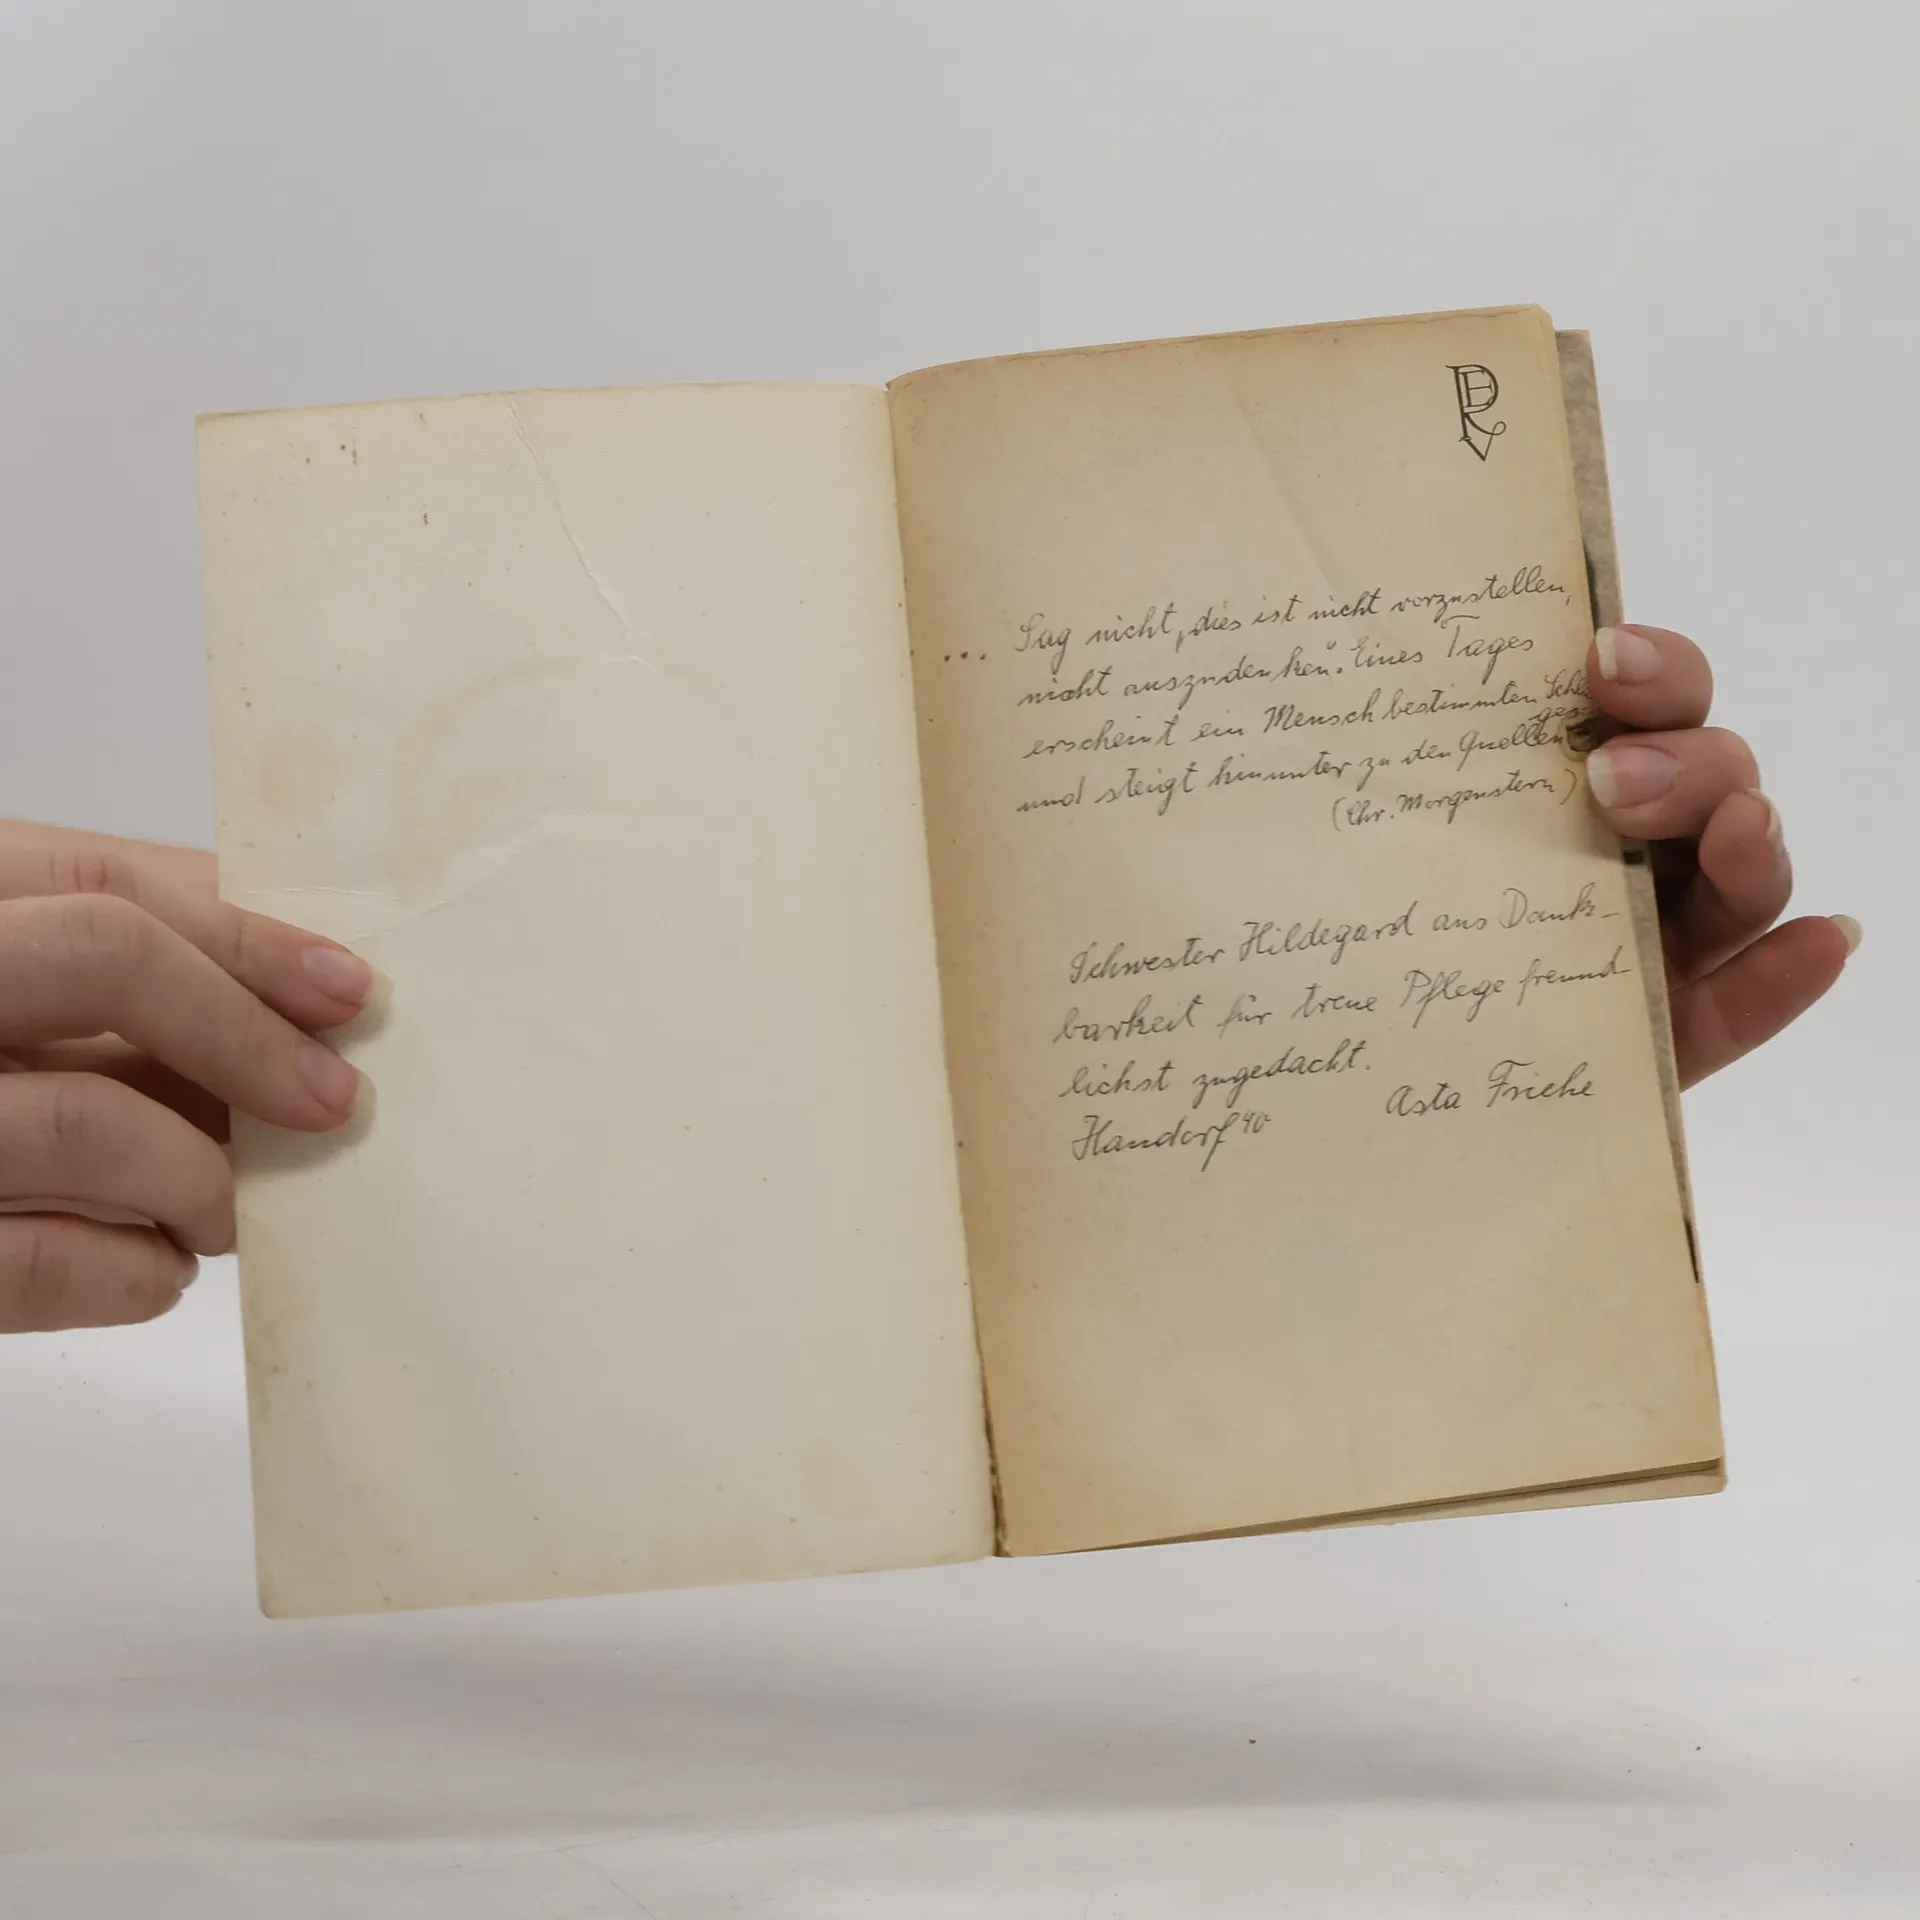 ... Sag nicht, dies ist nicht vorzustellen,
nicht auszudenken". Eines Tages
erscheint ein Mensch bestimmten
und steigt hinunter zu den Quellen
(Chr. Morgenstern)
Schwester Hildegard aus Dank-
barkeit für treue Pflege freund-
lichst zugedacht.
Handorf 40 Asta Friehe